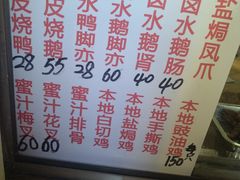 盐焗凤爪
卤水鹅肠 40
卤水鹅肾 40
水鹅脚亦 60
水鸭脚亦 28
皮烧鹅 55
皮烧鸭 28
本地豉油鸡 150
本地手撕鸡
本地盐焗鸡
本地白切鸡
蜜汁排骨
蜜汁花叉 60
蜜汁梅叉 60